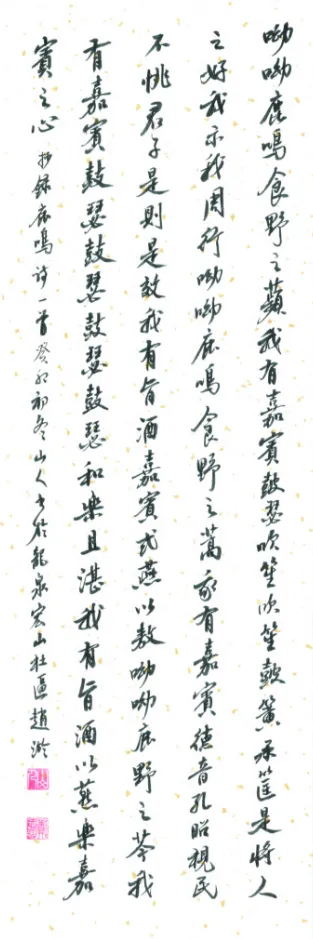 呦呦鹿鳴食野之蘋我有嘉賓鼓瑟吹笙吹笙鼓簧承筐是將人
之好我示我周行呦呦鹿鳴食野之蒿我有嘉賓德音孔昭視民
不恌君子是則是效我有旨酒嘉賓式燕以敖呦呦鹿野之芩我
有嘉賓鼓瑟鼓瑟鼓瑟鼓瑟和樂且湛我有旨酒以燕樂嘉
賓之心抄錄鹿鳴詩一首癸卯初冬山人書於龍泉宏山社區趙